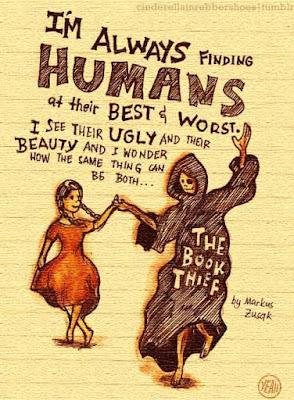 cinderellainrebbershoes|tumblr
I'M ALWAYS FINDING
HUMANS
at their BEST & WORST.
I SEE THEIR UGLY AND THEIR
BEAUTY AND I WONDER
HOW THE SAME THING CAN
BE BOTH...
THE
BOOK
THIEF
by Markus
Zusak
YEAH